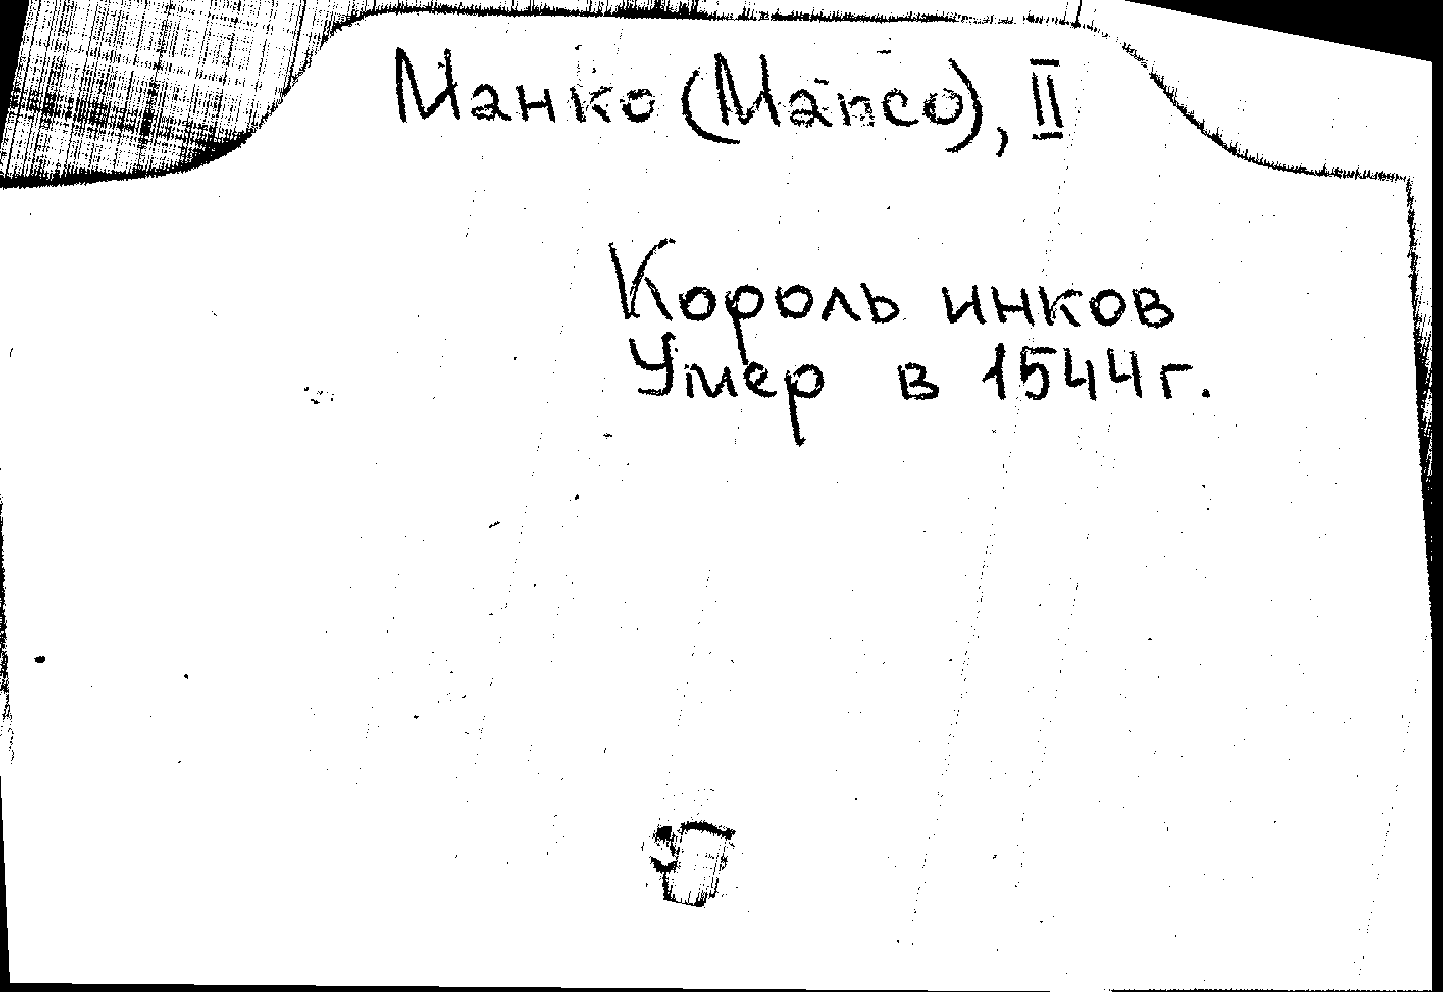 Манко (Manco), II
Король инков
Умер в 1544 г.